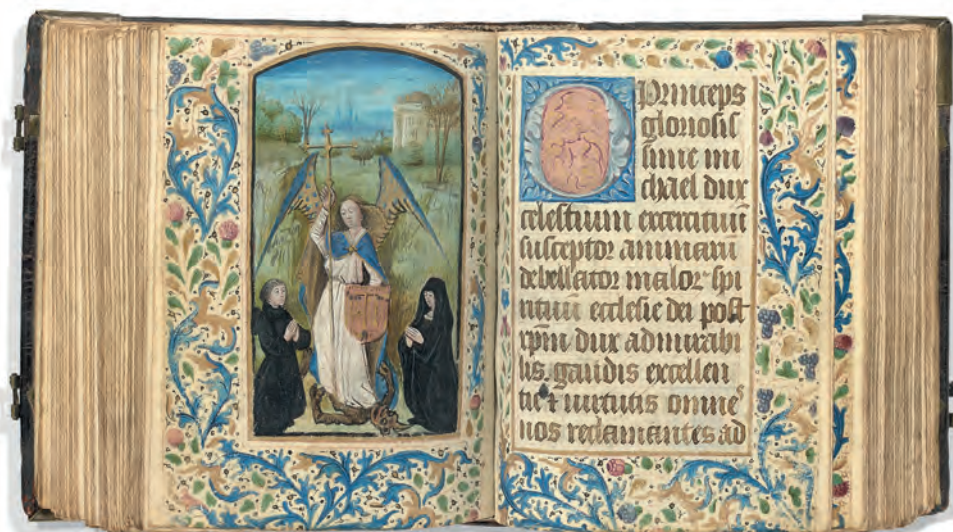 O Princeps
gloriosis
sime mi
chael dux
celestium excercituū
susceptor animarū
debellator malor spi
rituū ecclesie dei post
xp̄m dux admirabi
lis. gaudis excellen
tie ⁊ uirtutis omne᷒
uos reclamantes ad